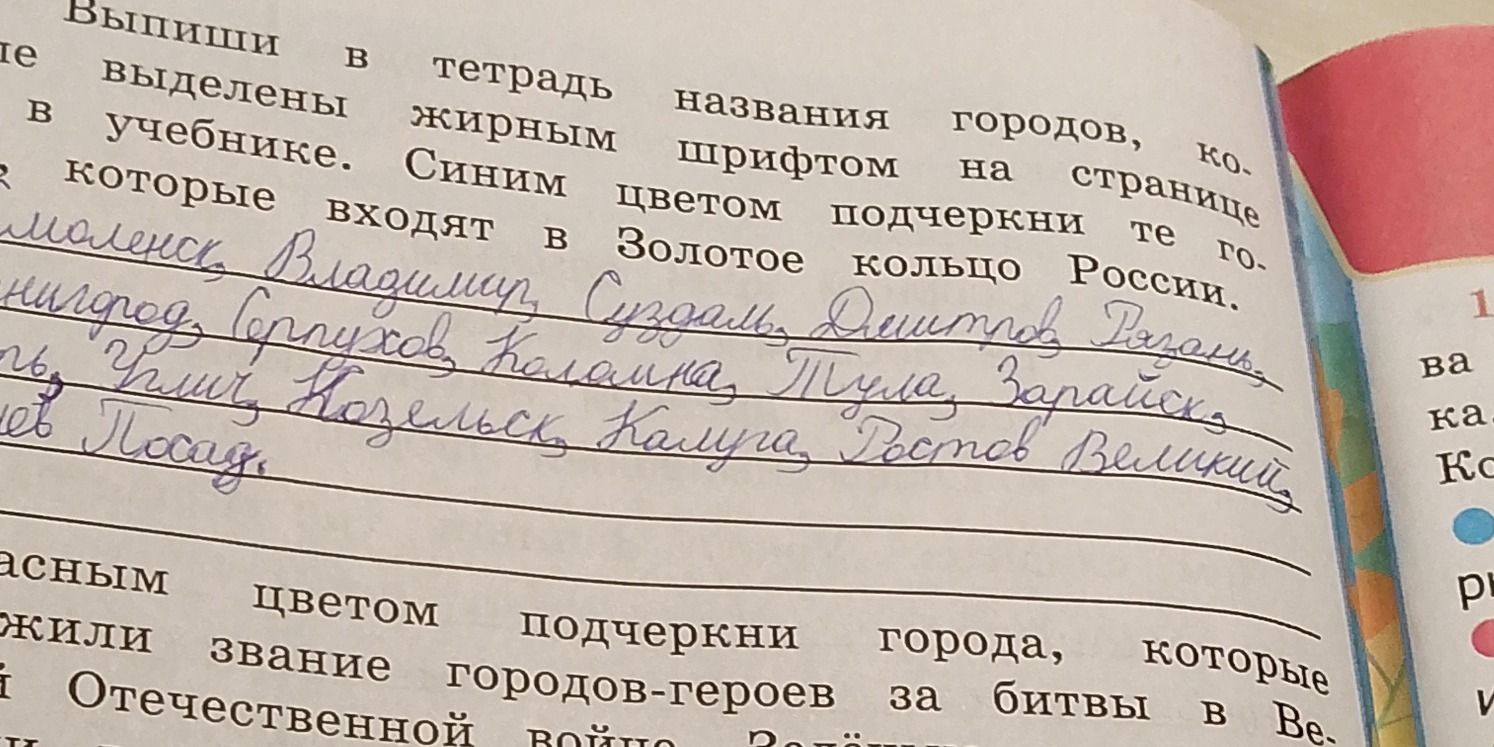 Выпиши в тетрадь названия городов, ко-
ые выделены жирным шрифтом на странице
в учебнике. Синим цветом подчеркни те го-
которые входят в Золотое кольцо России.
моленск, Владимир, Суздаль, Дмитров, Рязань,
нигород, Серпухов, Коломна, Тула, Зарайск,
ль, Углич, Козельск, Калуга, Ростов Великий,
иев Посад.
асным цветом подчеркни города, которые
жили звание городов-героев за битвы в Ве-
й Отечественной войне.
1
ва
ка
Ко